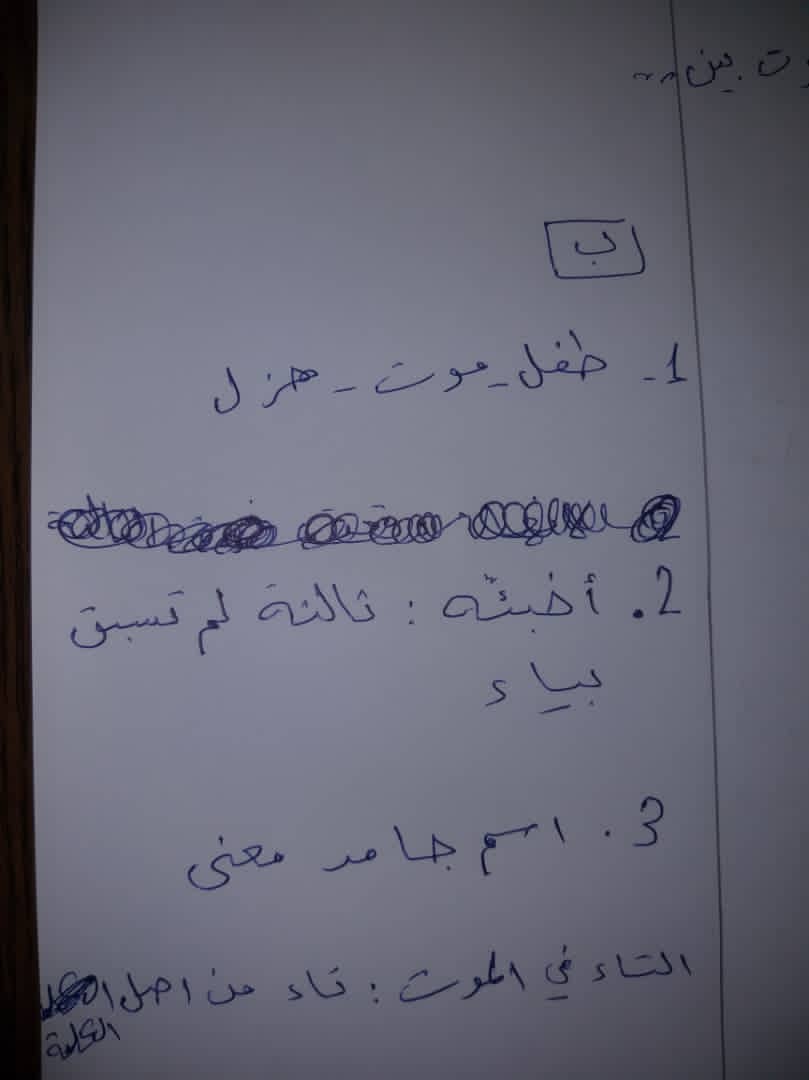 ت بين..
ب
1- طفل - موت - هزل
2. أخبئه : ثالثة لم تسبق
بياء
3. اسم جامد معنى
التاء في الموت : تاء من اصل
الكلمة